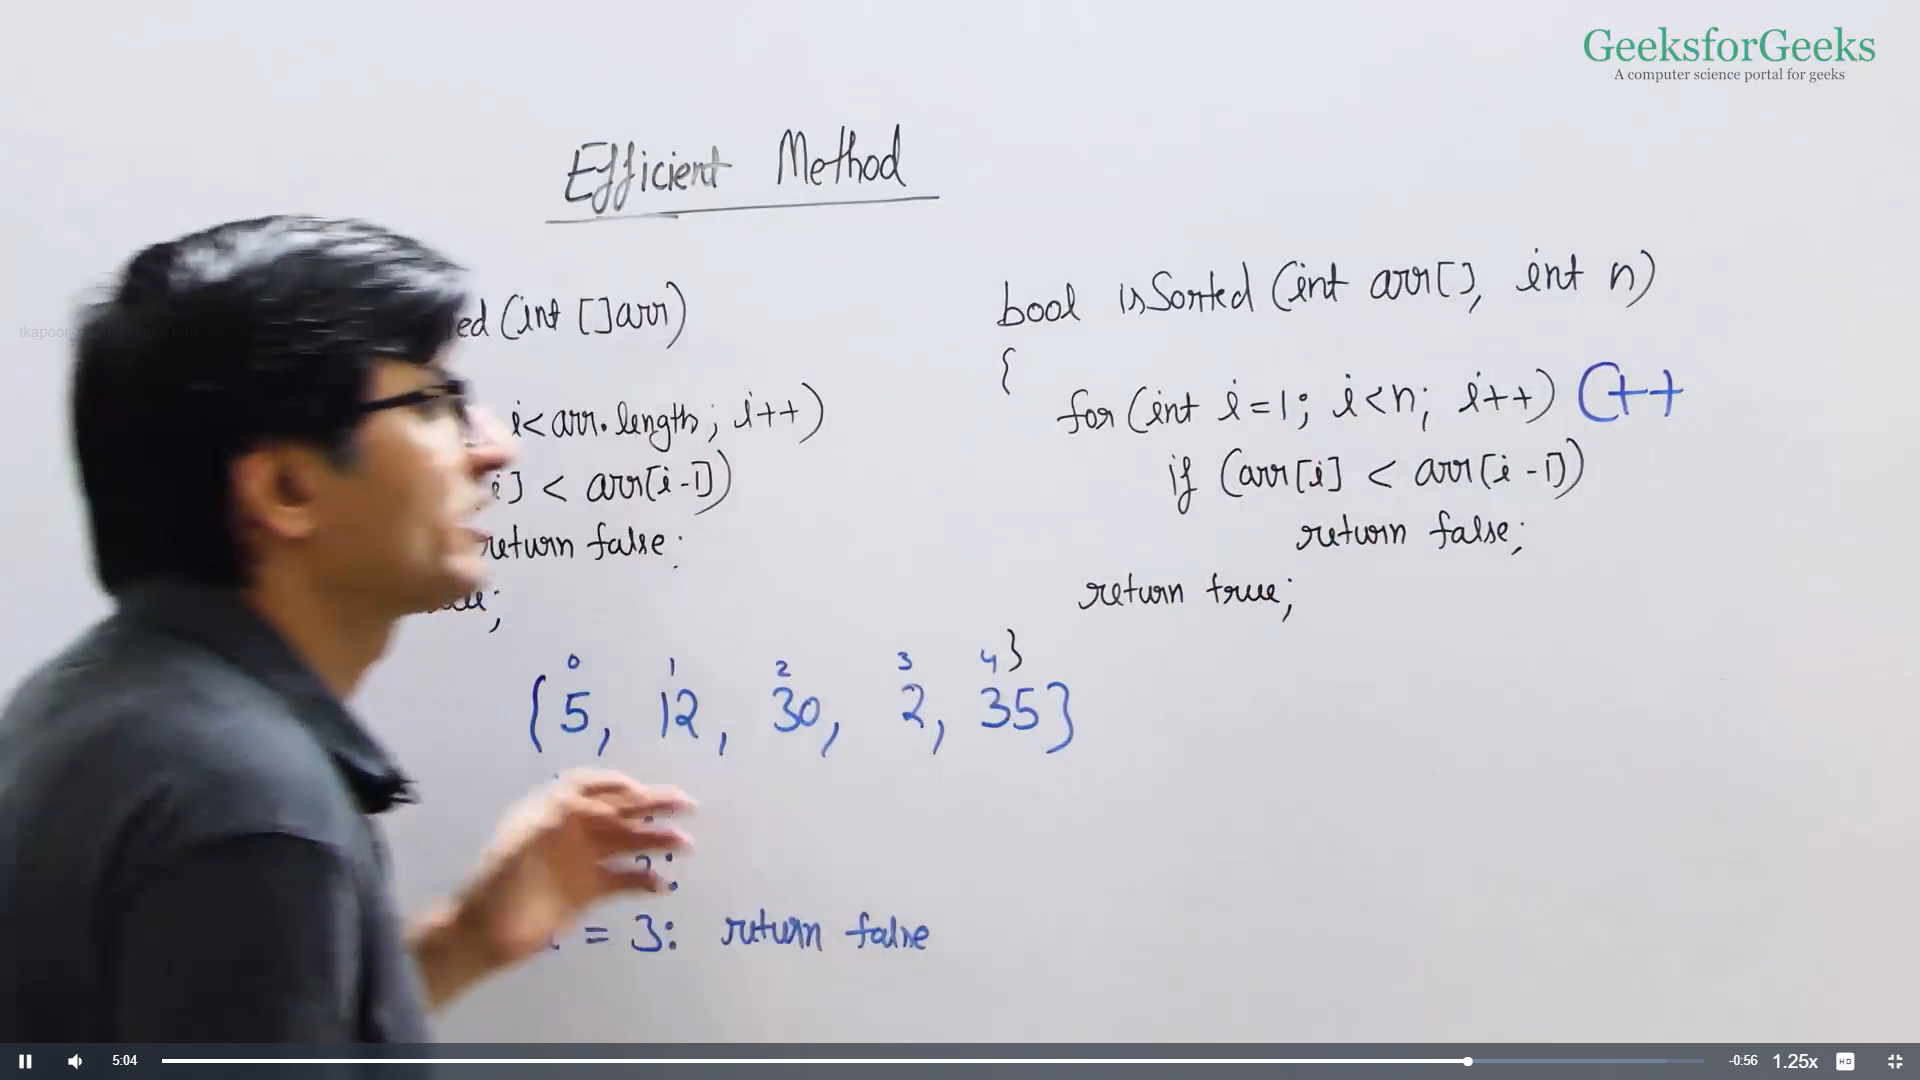 GeeksforGeeks
A computer science portal for geeks
Efficient Method
ed (int []arr)
i<arr.length; i++)
i] < arr[i-1])
return false;
bool isSorted (int arr[], int n)
{
for (int i=1; i<n; i++) C++
if (arr[i] < arr[i-1])
return false;
return true;
}
0 1 2 3 4
{5, 12, 30, 2, 35}
2:
= 3: return false
5:04
-0:56 1.25x HD